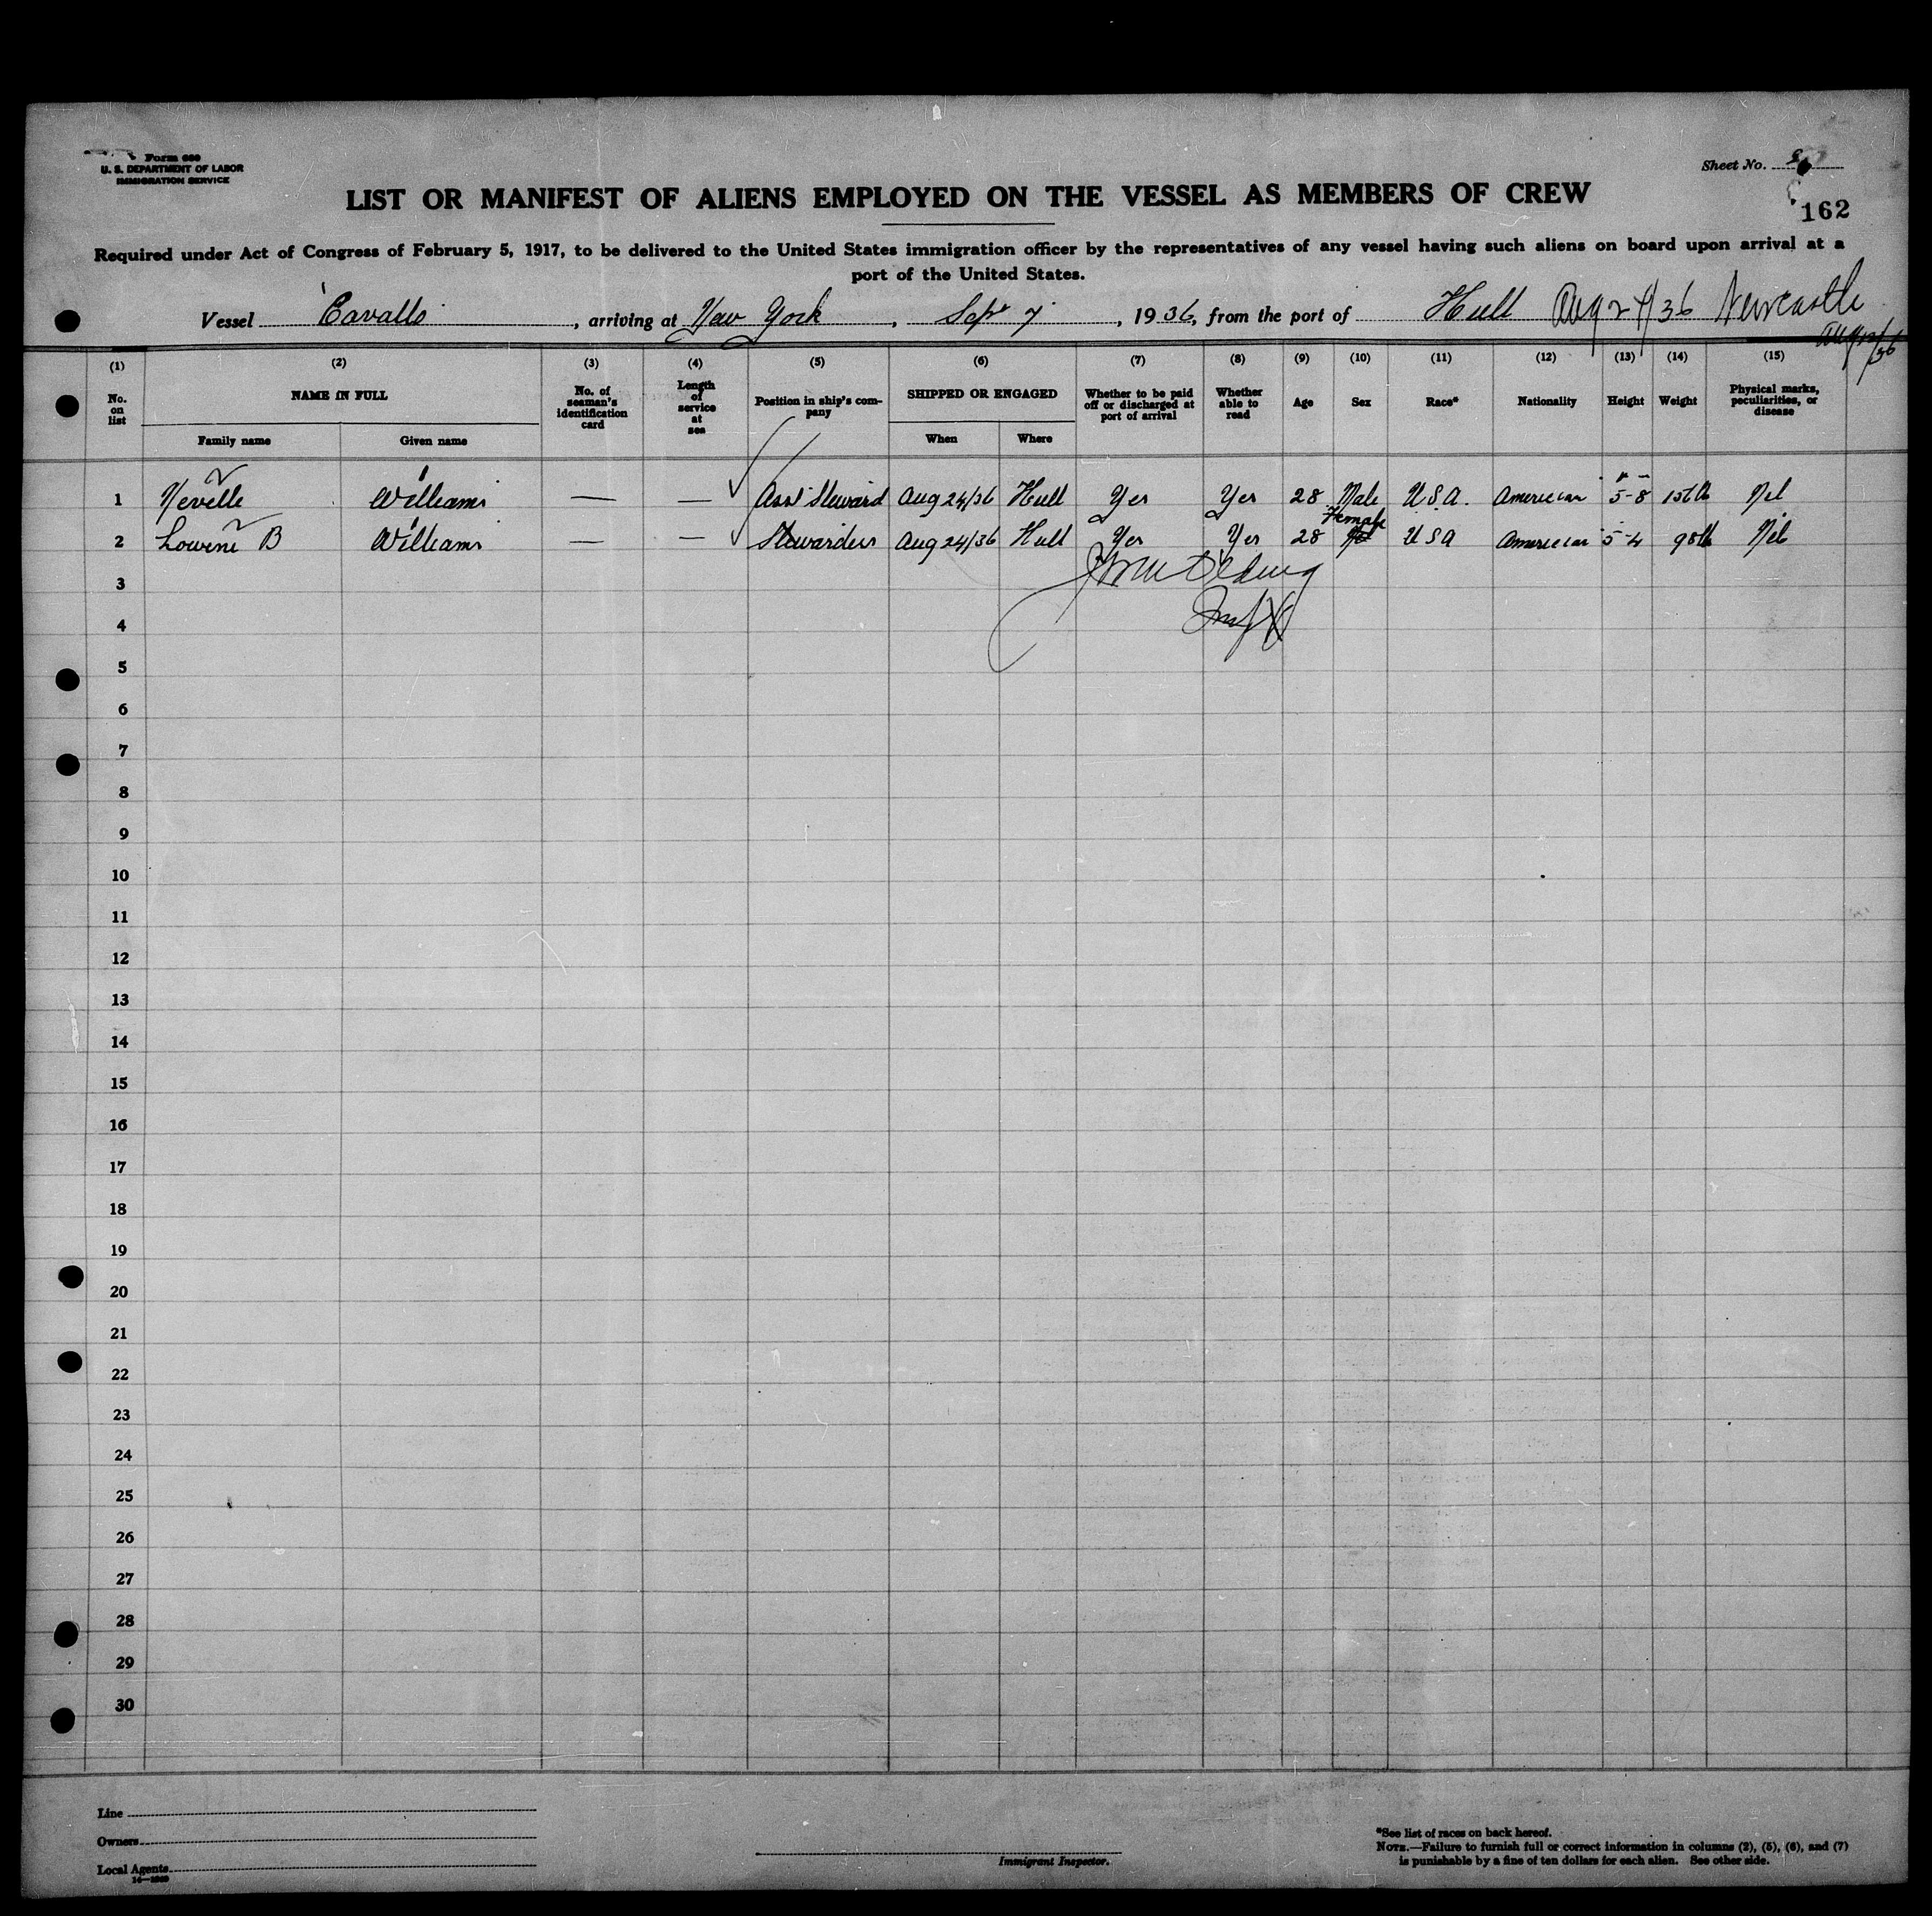 Form 680
U. S. DEPARTMENT OF LABOR
IMMIGRATION SERVICE
Sheet No.
LIST OR MANIFEST OF ALIENS EMPLOYED ON THE VESSEL AS MEMBERS OF CREW
162
Required under Act of Congress of February 5, 1917, to be delivered to the United States immigration officer by the representatives of any vessel having such aliens on board upon arrival at a
port of the United States.
Vessel Cavallo, arriving at New York, Sept 7, 1936, from the port of Hull Aug 24/36 Newcastle
(1) (2) (3) (4) (5) (6) (7) (8) (9) (10) (11) (12) (13) (14) (15)
No. on list NAME IN FULL No. of seaman's identification card Length of service at sea Position in ship's company SHIPPED OR ENGAGED Whether to be paid off or discharged at port of arrival Whether able to read Age Sex Race* Nationality Height Weight Physical marks, peculiarities, or disease
Family name Given name When Where
1 Neville Williams — — Asst Steward Aug 24/36 Hull Yes Yes 28 Male U.S.A. American 5-8 Nil
2 B Williams — — Stewardess Aug 24/36 Hull Yes Yes 28 Female USA American 5-4 98lb Nil
3
4
5
6
7
8
9
10
11
12
13
14
15
16
17
18
19
20
21
22
23
24
25
26
27
28
29
30
Line
Owners
Local Agents
Immigrant Inspector.
*See list of races on back hereof.
NOTE.—Failure to furnish full or correct information in columns (2), (5), (6), and (7)
is punishable by a fine of ten dollars for each alien. See other side.